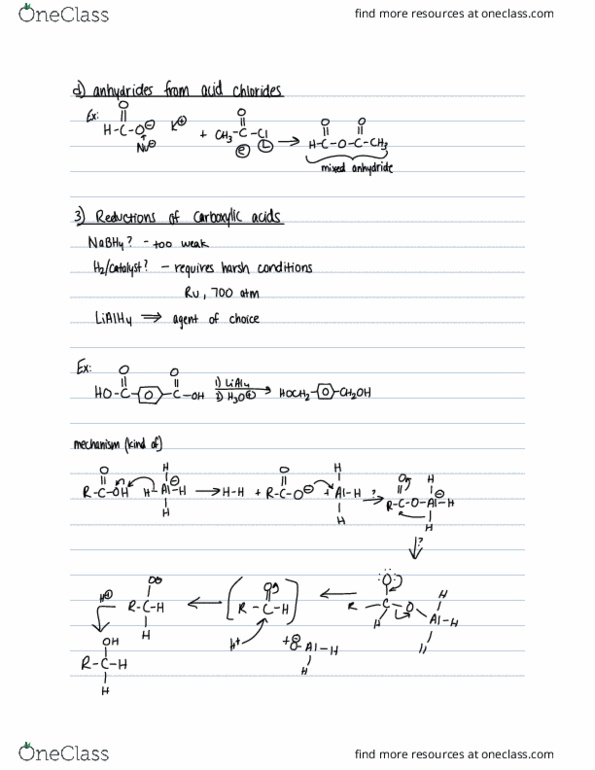 OneClass
find more resources at oneclass.com
d) anhydrides from acid chlorides
Ex:
O O O O
H-C-O⊖ K⊕ + CH3-C-Cl → H-C-O-C-CH3
Nu⊖ e L
mixed anhydride
3) Reductions of Carboxylic acids
NaBH4? - too weak
H2/catalyst? - requires harsh conditions
Ru, 700 atm
LiAlH4 ⟹ agent of choice
Ex:
O O
HO-C-O-C-OH 1) LiAl4 2) H3O⊕ → HOCH2-O-CH2OH
mechanism (kind of)
O H ⊖ O H O H
R-C-OH H-Al-H → H-H + R-C-O⊖ + Al-H ? → R-C-O-Al-H ⊖
H H H
?
H⊕ O O O H
R-C-H ← ( R-C-H ) ← R-C-O-Al-H
H H
OH H+ + ⊖O-Al-H
R-C-H H
H
OneClass
find more resources at oneclass.com